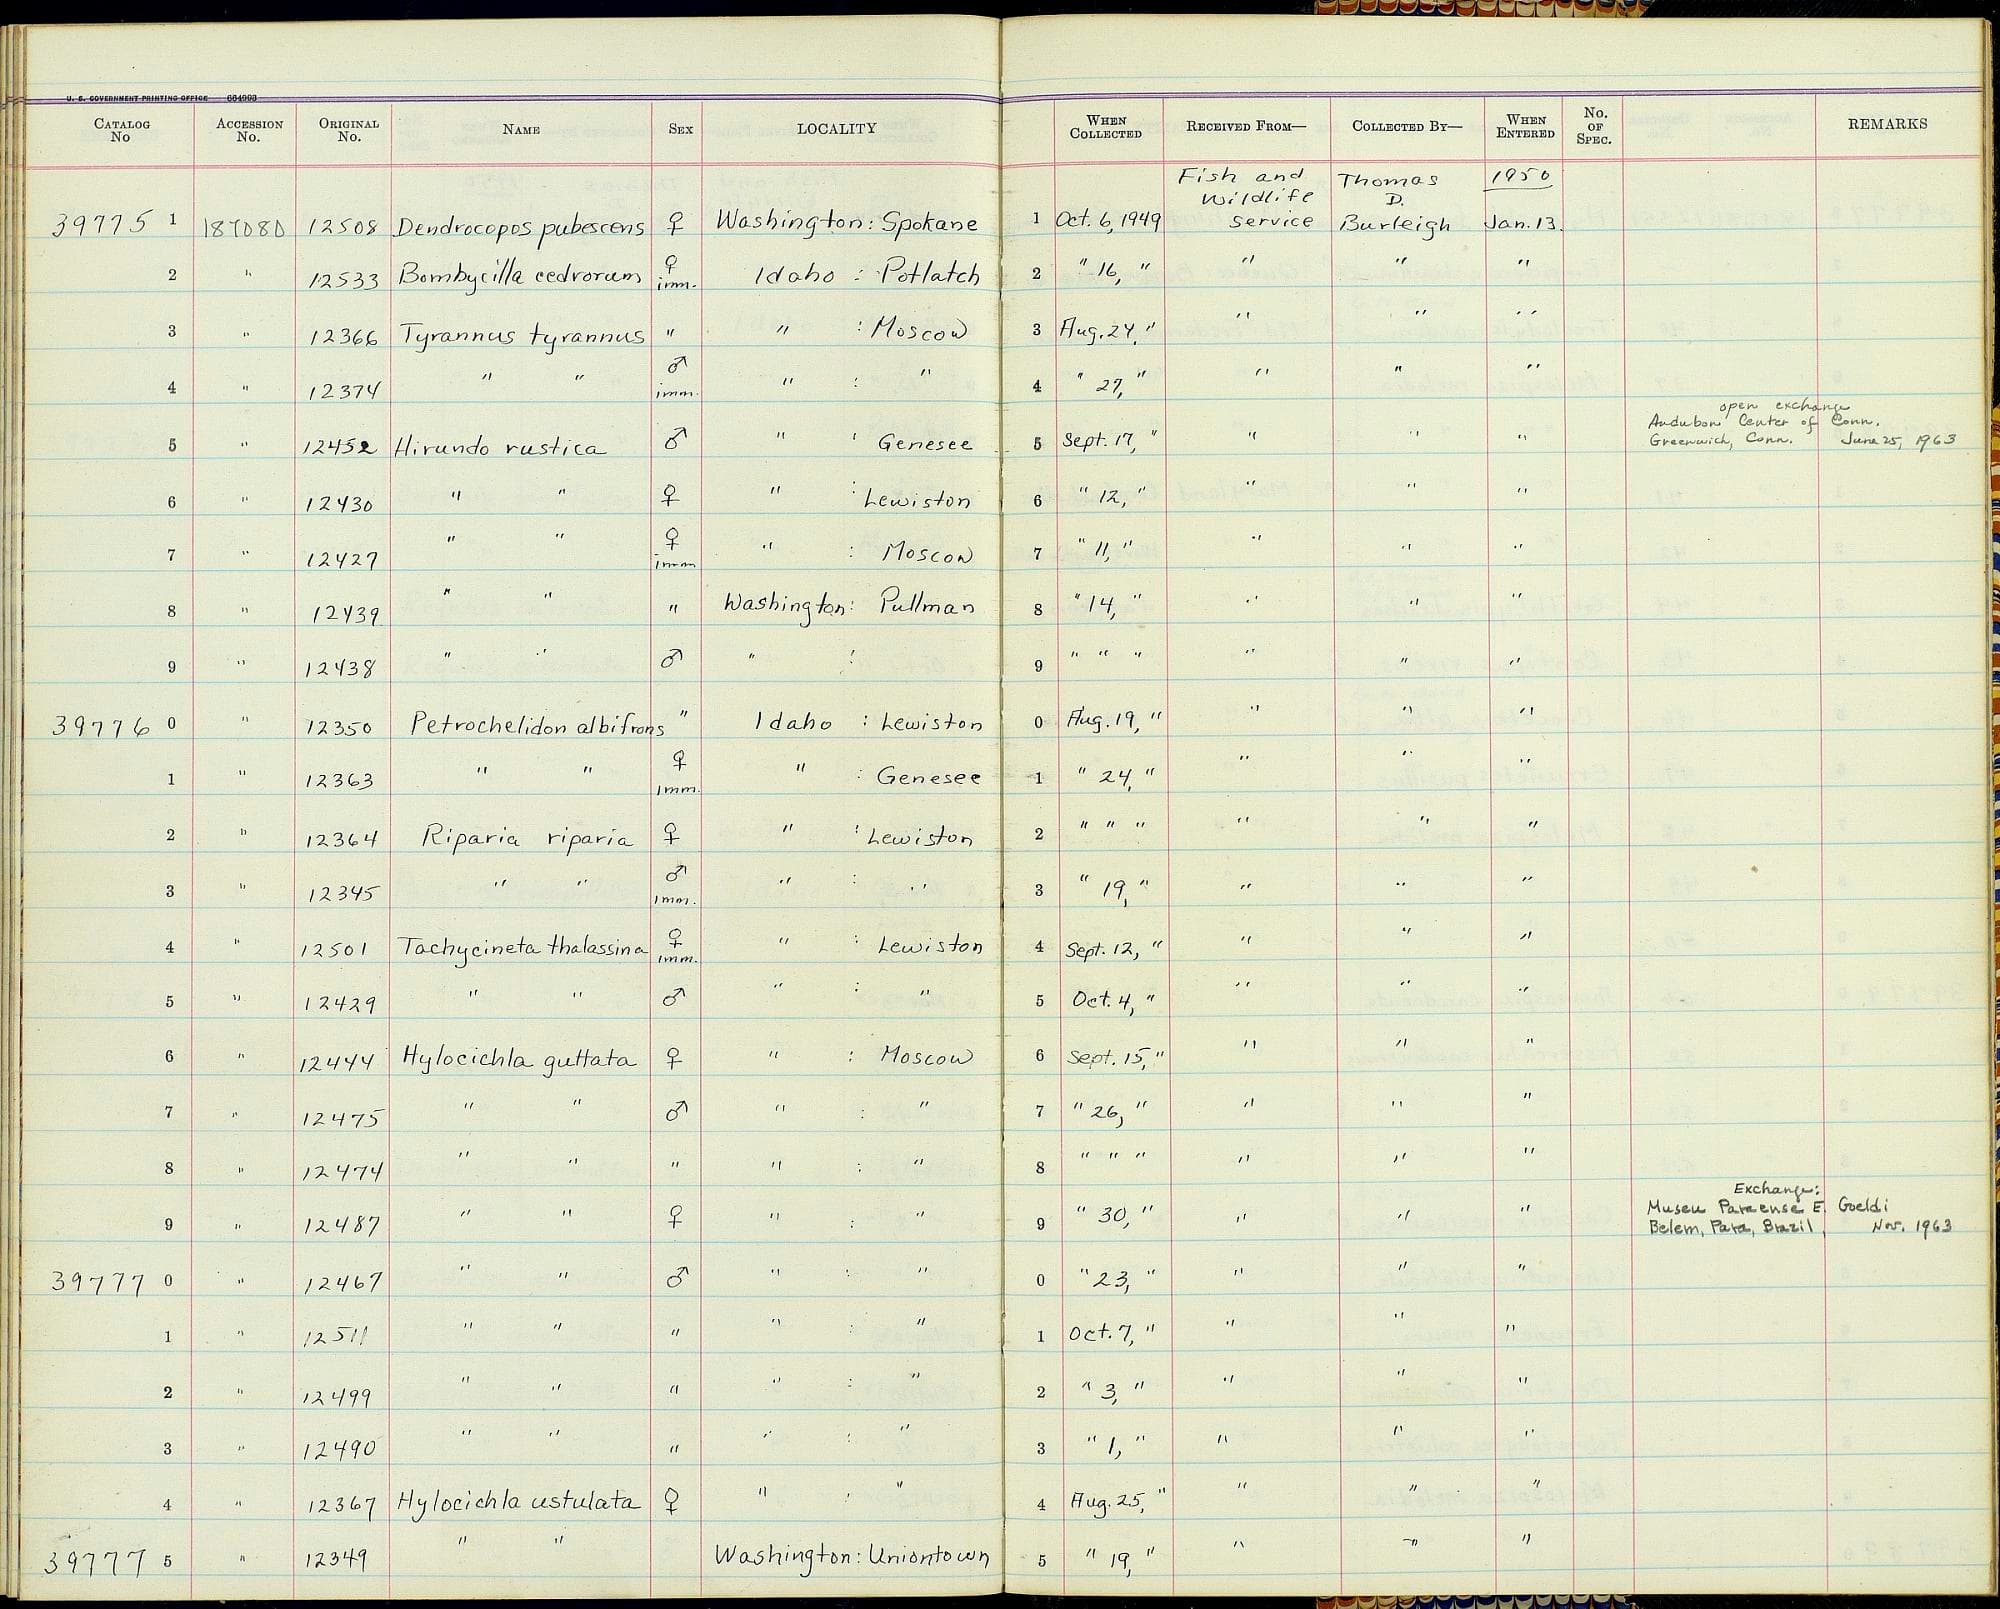 U. S. GOVERNMENT PRINTING OFFICE 664993
CATALOG No ACCESSION No. ORIGINAL No. NAME SEX LOCALITY WHEN COLLECTED RECEIVED FROM— COLLECTED BY— WHEN ENTERED No. OF SPEC. REMARKS
Fish and Thomas 1950
Wildlife D.
39775 1 187080 12508 Dendrocopos pubescens ♀ Washington: Spokane 1 Oct. 6, 1949 Service Burleigh Jan. 13.
2 " 12533 Bombycilla cedrorum ♀ imm. Idaho : Potlatch 2 " 16, " " " "
3 " 12366 Tyrannus tyrannus " " : Moscow 3 Aug. 24, " " " "
4 " 12374 " " ♂ imm. " : " 4 " 27, " " " "
open exchange
Audubon Center of Conn.
5 " 12452 Hirundo rustica ♂ " : Genesee 5 Sept. 17, " " " " Greenwich, Conn. June 25, 1963
6 " 12430 " " ♀ " : Lewiston 6 " 12, " " " "
7 " 12427 " " ♀ imm " : Moscow 7 " 11, " " " "
8 " 12439 " " " Washington: Pullman 8 " 14, " " " "
9 " 12438 " " ♂ " : 9 " " " " " "
39776 0 " 12350 Petrochelidon albifrons " Idaho : Lewiston 0 Aug. 19, " " " "
1 " 12363 " " ♀ imm. " : Genesee 1 " 24, " " " "
2 " 12364 Riparia riparia ♀ " : Lewiston 2 " " " " " "
3 " 12345 " " ♂ imm. " : " 3 " 19, " " " "
4 " 12501 Tachycineta thalassina ♀ imm. " : Lewiston 4 Sept. 12, " " " "
5 " 12429 " " ♂ " : " 5 Oct. 4, " " " "
6 " 12444 Hylocichla guttata ♀ " : Moscow 6 Sept. 15, " " " "
7 " 12475 " " ♂ " : " 7 " 26, " " " "
8 " 12474 " " " " : " 8 " " " " " "
Exchange:
Museu Paraense E. Goeldi
9 " 12487 " " ♀ " : " 9 " 30, " " " " Belem, Para, Brazil, Nov. 1963
39777 0 " 12467 " " ♂ " : " 0 " 23, " " " "
1 " 12511 " " " " : " 1 Oct. 7, " " " "
2 " 12499 " " " " : " 2 " 3, " " " "
3 " 12490 " " " " : " 3 " 1, " " " "
4 " 12367 Hylocichla ustulata ♀ " : " 4 Aug. 25, " " " "
39777 5 " 12349 " " Washington: Uniontown 5 " 19, " " " "